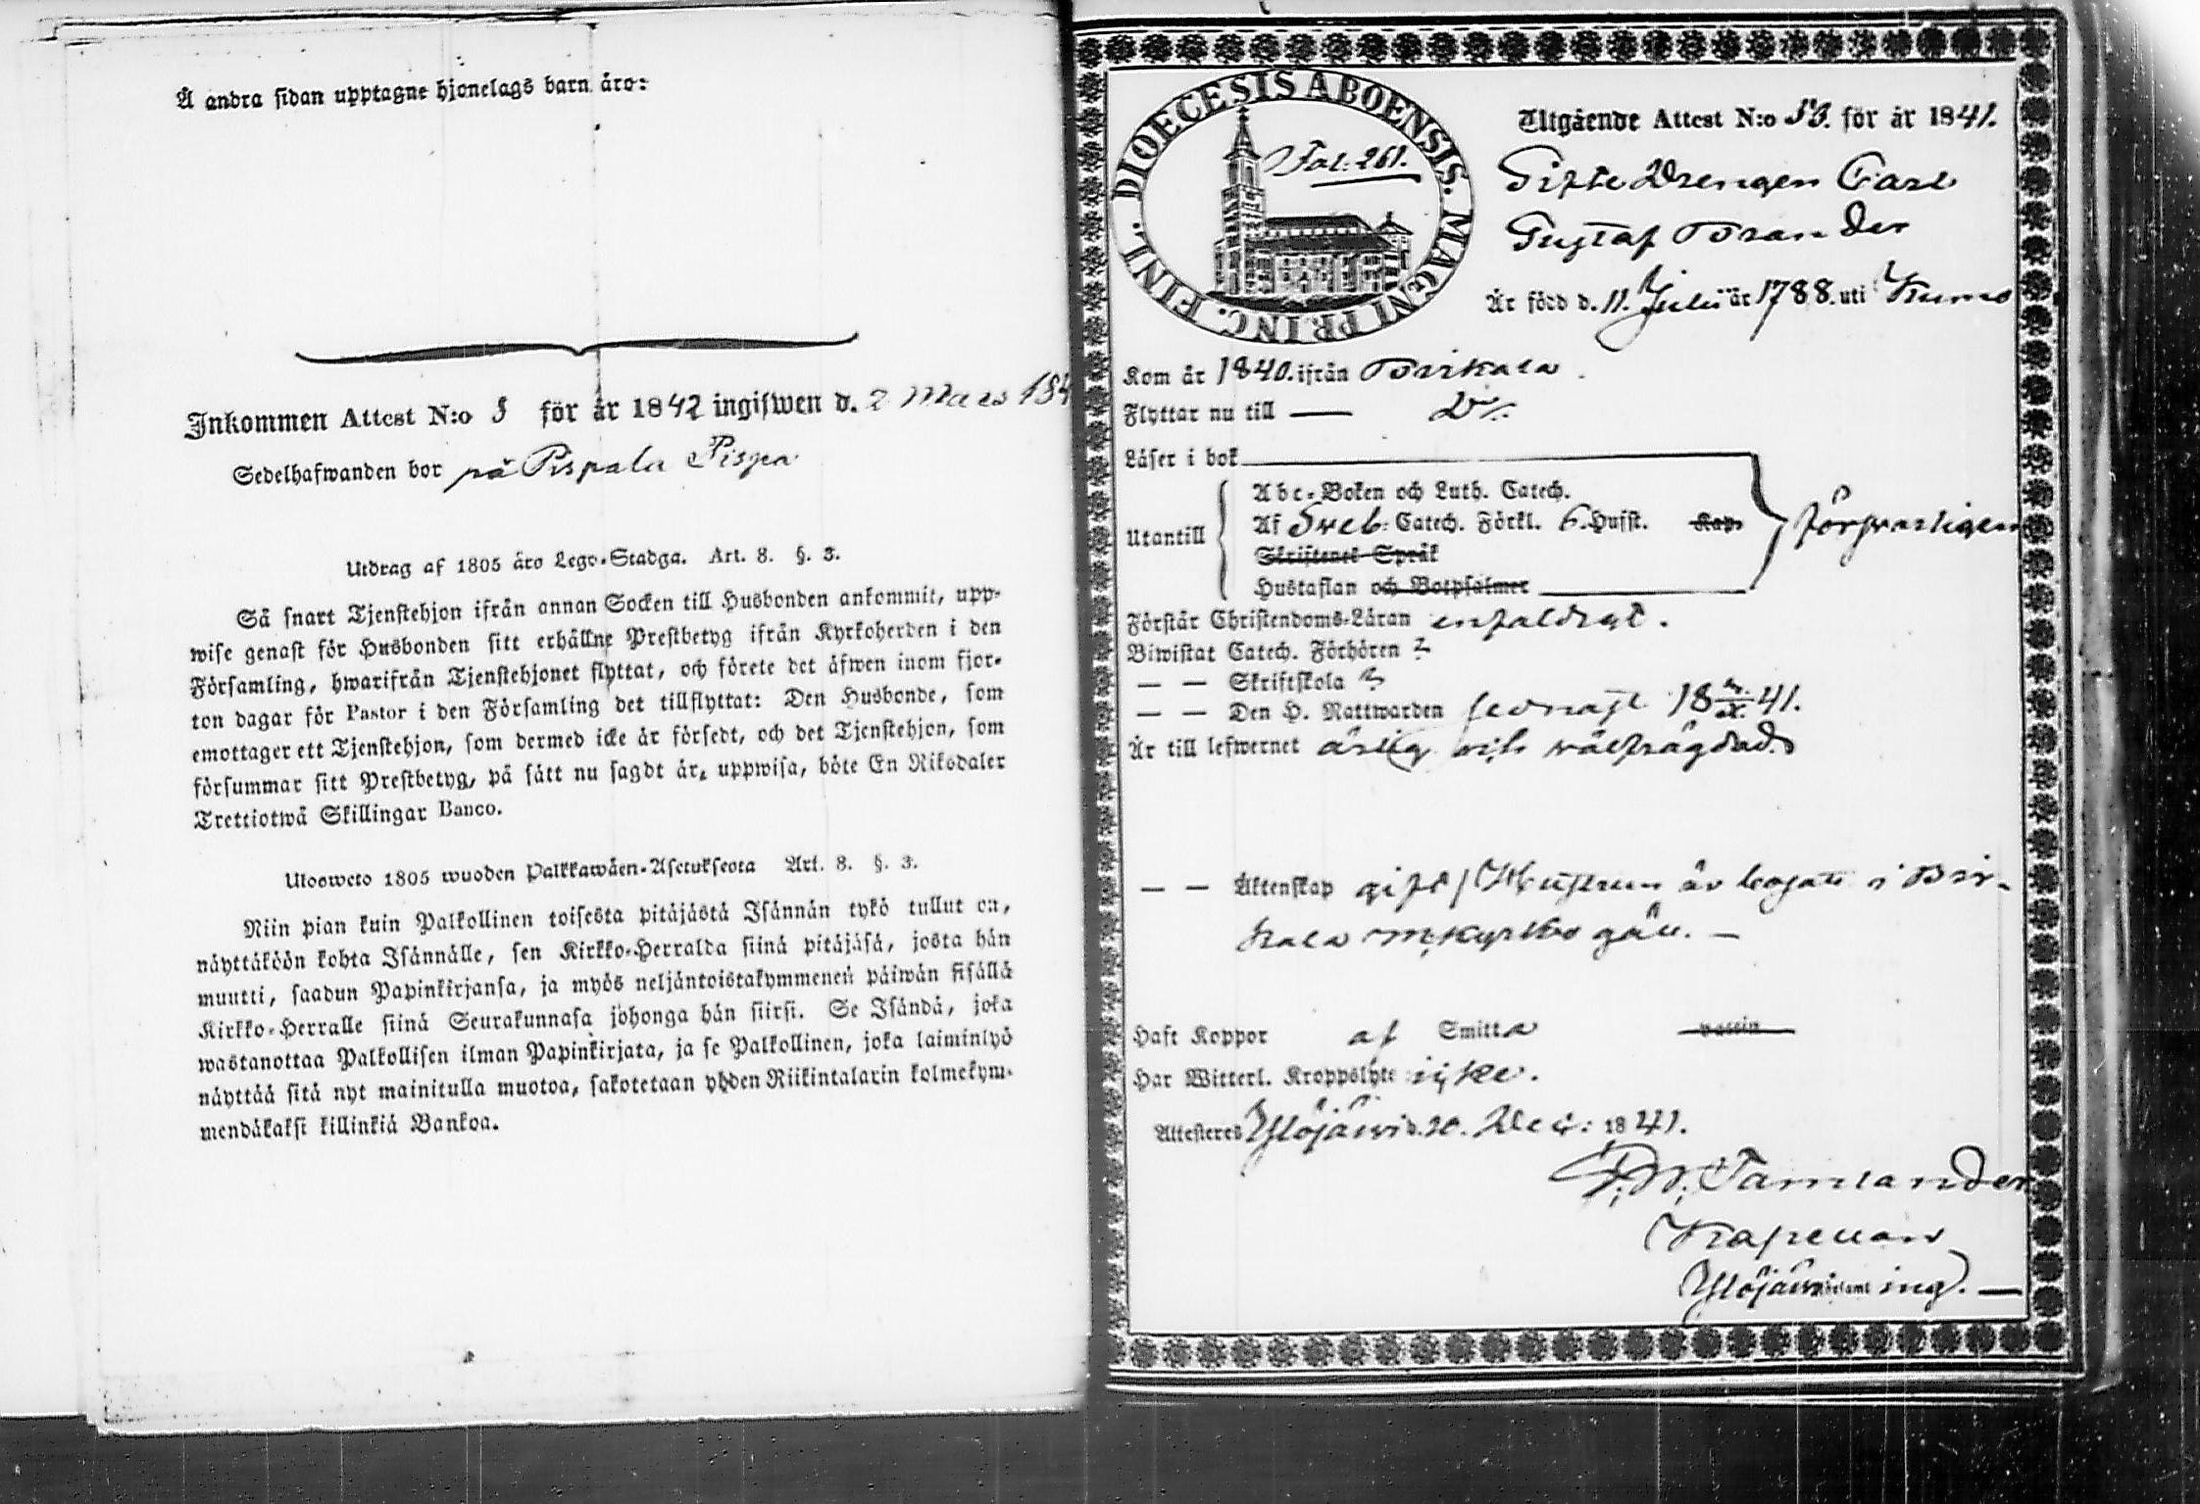 Å andra sidan upptagne hjonelags barn äro:
Inkommen Attest N:o för år 1842 ingifwen d. 2 Mars 184
Sedelhafwanden bor på Pispala Pispa
Utdrag af 1805 års Lego-Stadga. Art. 8. §. 3.
Så snart Tjenstehjon ifrån annan Socken till Husbonden ankommit, upp-
wise genast för Husbonden sitt erhållne Prestbetyg ifrån Kyrkoherden i den
Församling, hwarifrån Tjenstehjonet flyttat, och förete det äfwen inom fjor-
ton dagar för Pastor i den Församling det tillflyttat: Den Husbonde, som
emottager ett Tjenstehjon, som dermed icke är försedt, och det Tjenstehjon, som
försummar sitt Prestbetyg, på sätt nu sagdt är, uppwisa, böte En Riksdaler
Trettiotwå Skillingar Banco.
Ulosweto 1805 wuoden Palkkawäen-Asetuksesta Art. 8. §. 3.
Niin pian kuin Palkollinen toisesta pitäjästä Isännän tykö tullut on,
näyttäköön kohta Isännälle, sen Kirkko-Herralda siinä pitäjäsä, josta hän
muutti, saadun Papinkirjansa, ja myös neljäntoistakymmenen päiwän sisällä
Kirkko-Herralle siinä Seurakunnasa johonga hän siirsi. Se Isändä, joka
wastanottaa Palkollisen ilman Papinkirjata, ja se Palkollinen, joka laiminlyö
näyttää sitä nyt mainitulla muotoa, sakotetaan yhden Riikintalarin kolmekym-
mendäkaksi killinkiä Bankoa.
DIOECESIS ABOENSIS. MAGNI PRINC. FINL.
Fol. 261.
Utgående Attest N:o 53. för år 1841.
Gifte Drengen Carl
Gustaf Brander
Är född d. 11. Julii år 1788. uti Kumo
Kom år 1840. ifrån Birkala.
Flyttar nu till — D:o
Läser i bok
Utantill
Abc-Boken och Luth. Catech.
Af Sveb. Catech. Förkl. 6. Hufst. Kap.
Skriftenes Språk
Hustaflan och Botpsalmer
försvarligen
Förstår Christendoms-Läran enfaldigt.
Biwistat Catech. Förhören
— — Skriftskola
— — Den H. Nattwarden senast 18 41.
Är till lefwernet ärlig och välfrägdad.
— — Äktenskap gift, Hustrun är bosatt i Bir-
kala m. kyrko gäll. —
Haft Koppor af Smitta vaccin
Har Witterl. Kroppslyte icke.
Attesteres Ylöjärvi d. 20. Dec: 1841.
Tamlander
Kapellan
Ylöjärvi